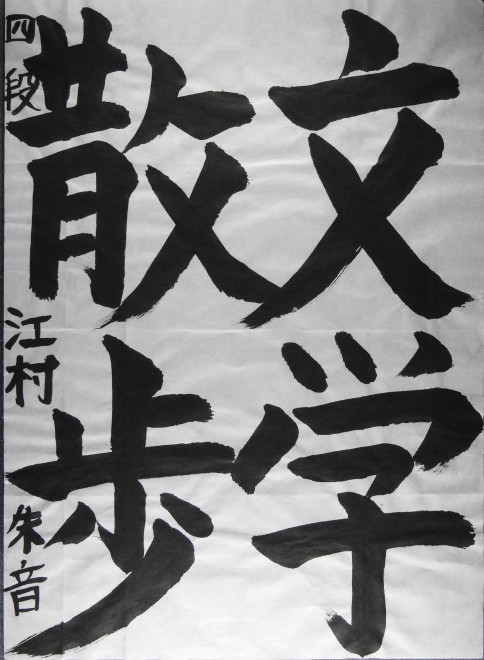 文学
散歩
四段 江村 朱音